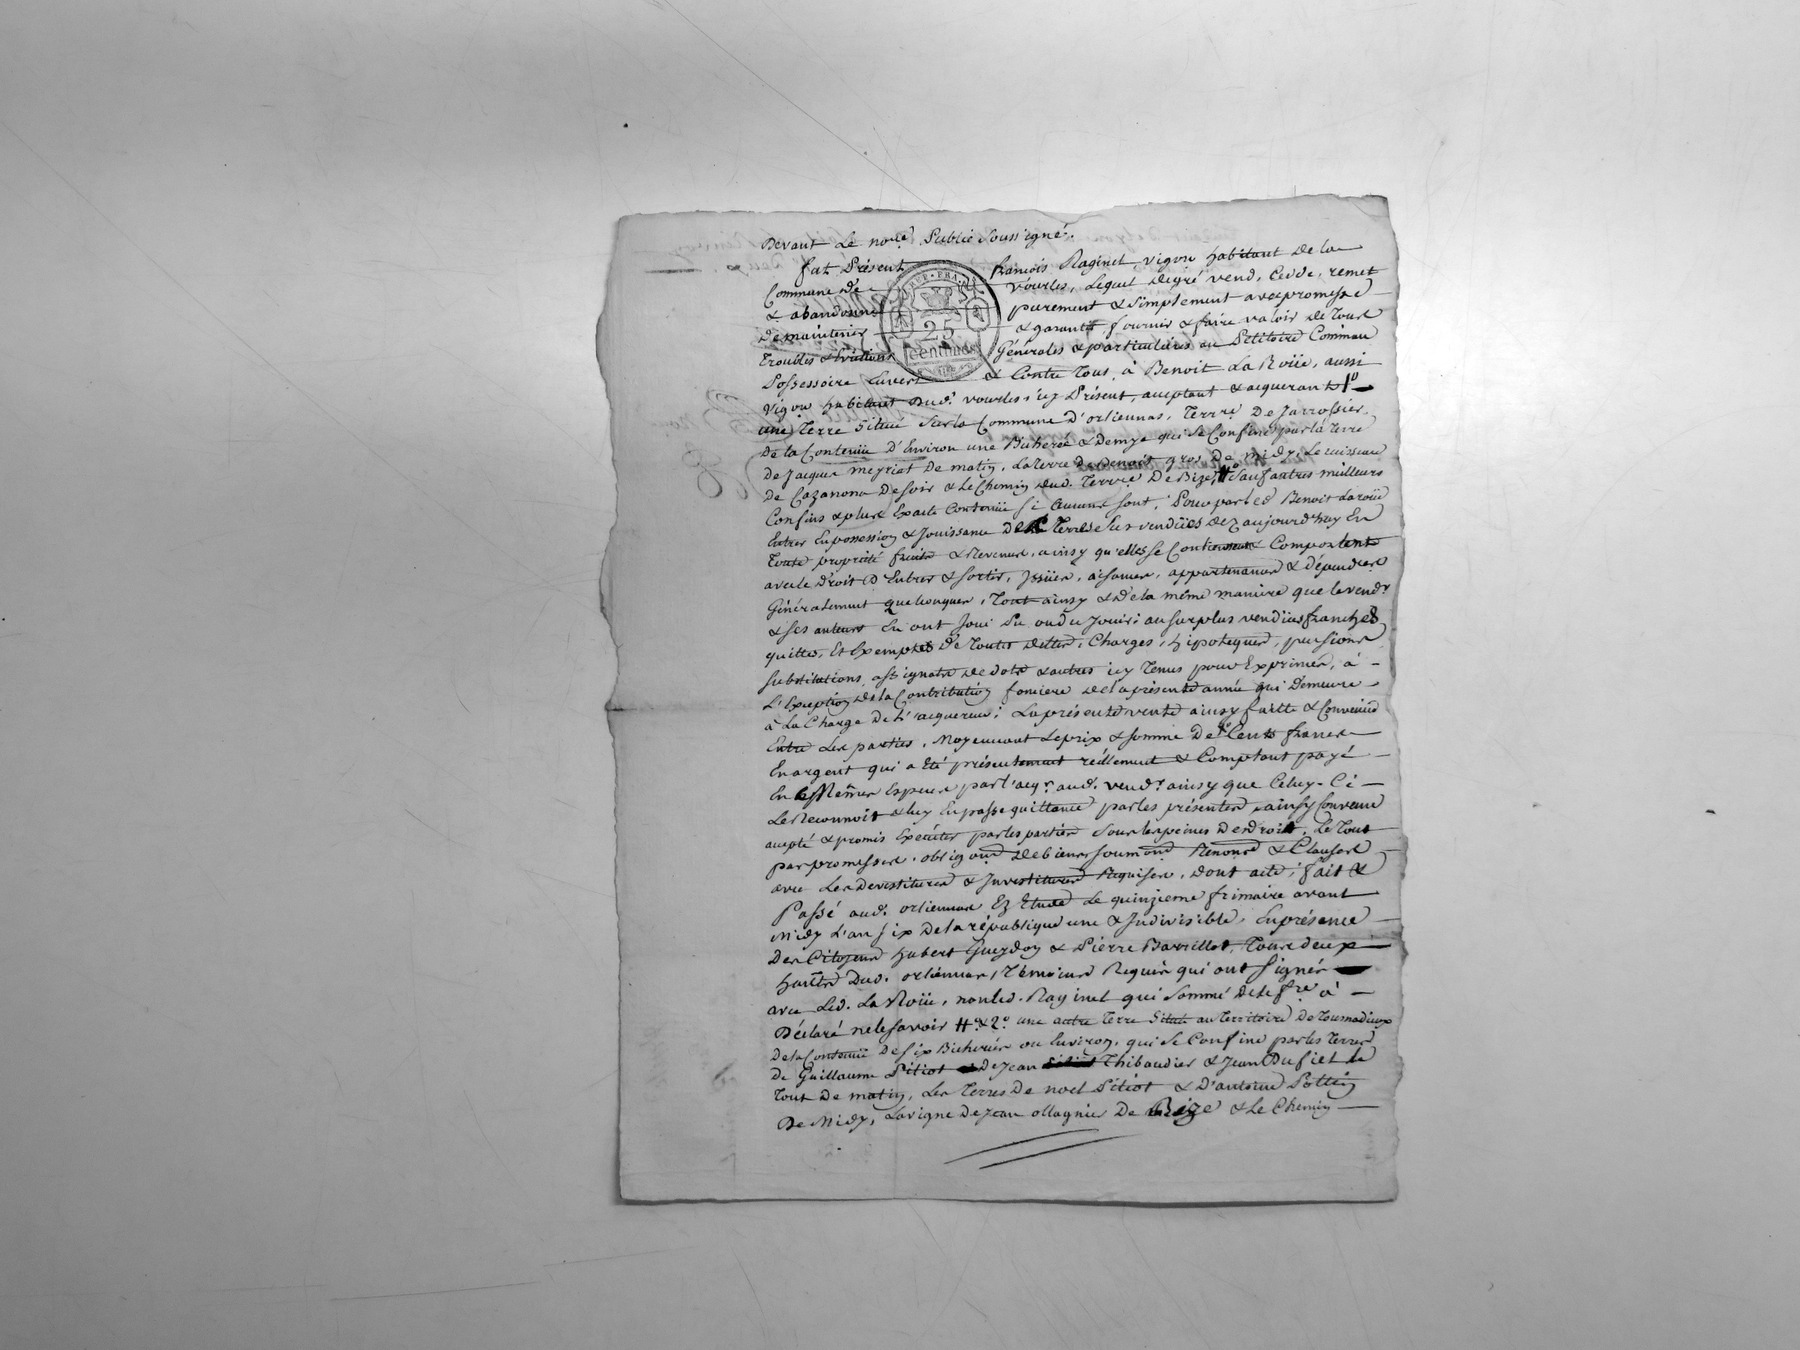 Devant Le no.re Public Soussigné.
fut Présent françois Raginel, vigon habitant De la
Commune de Vourles, Lequel Degré vend, Cedde, remet
& abandonne purement & Simplement avec promesse
De maintenir & garantir, fournir & faire valoir De Tous
Troubles & Evictions Générales & particulières au Pétitoire Comm au
Possessoire Envers & Contre Tous, à Benoit La Roüe, aussi
Vigon habitant Dud. vourles icy Présent, aceptant & acquerant 1.o
une Terre Située Sur la Commune d'orliennas, Terrre De Jarrossier
De la Contenüe d'Environ une Bicherée & Demye qui Se Confine par la Terre
de Jacques meyriat De matin, La Terre de Benoit gros De midy, Le ruisseau
de Cazanona De soir & Le Chemin Dud. Terrre De Bize, # Sauf autres meilleurs
Confins & plus Exacte Contenüe Si Aucuns sont, Pour par led. Benoit Laroüe
Entrer En possession & Jouissance De Terres Sus vendües dez aujourd'huy En
Toute propriété fruits & Revenus, ainsy qu'elles Se Contiennent & Comportent
avec le Droit D'Entrer & sortir, Issües, aisances, appartenances & dépendces
Généralement quelconques, Tout ainsy & De la même manière que le vend.r
& Ses auteurs En ont Joui Du ou du Jouir; au surplus vendües franches
quittes, Et Exemptes De Toutes dettes, Charges, hipoteques, pensions
substitutions, assignats de dots & autres icy Tenus pour Exprimés, à
L'Exception de la Contribution fonciere de la présente année qui Demeure
à La Charge De L'acquereur; La présente vente ainsy faitte & Convenüe
Entre Les parties, Moyennant Le prix & somme De Cents francs
En argent qui a Eté présentement réellement & Comptant payé
En Mêmes Especes par l'acq.r aud. vend.r ainsy que Celuy-Ci
Le Reconnoit & luy En passe quittance par les présentes, ainsy Convenu
accepté & promis Executer par les parties Sous les peines De droit, Le Tout
par promesses, obligons De biens soumons Renons & Clauses
avec Les Devestitures & Investitures Requises, dont acte; fait &
Passé aud. orliennas Ez Etude Le quinzieme frimaire avant
Midy L'an six De la république une & Indivisible, En présence
Des Citoyens hubert Guerdon & Pierre Barrillot, Tous deux
hants Dud. orliennas, Témoins Requis qui ont Signés
avec Led. La Roüe, non led. Raginel qui Sommé De le f.re à
Déclaré ne le savoir # & 2.o une autre Terre Située au Territoire De Tournadieux
De la Contenüe De six Bicherées ou Environ, qui Se Confine par les Terres
De Guillaume Pitiot De Jean Thibaudier & Jean Dufiet le
Tout De matin, Les Terres De noel Pitiot & D'antoine Pottin
De Midy, La vigne De Jean ollagnier De Bize & Le Chemin
REP. FRA.
25
centimes